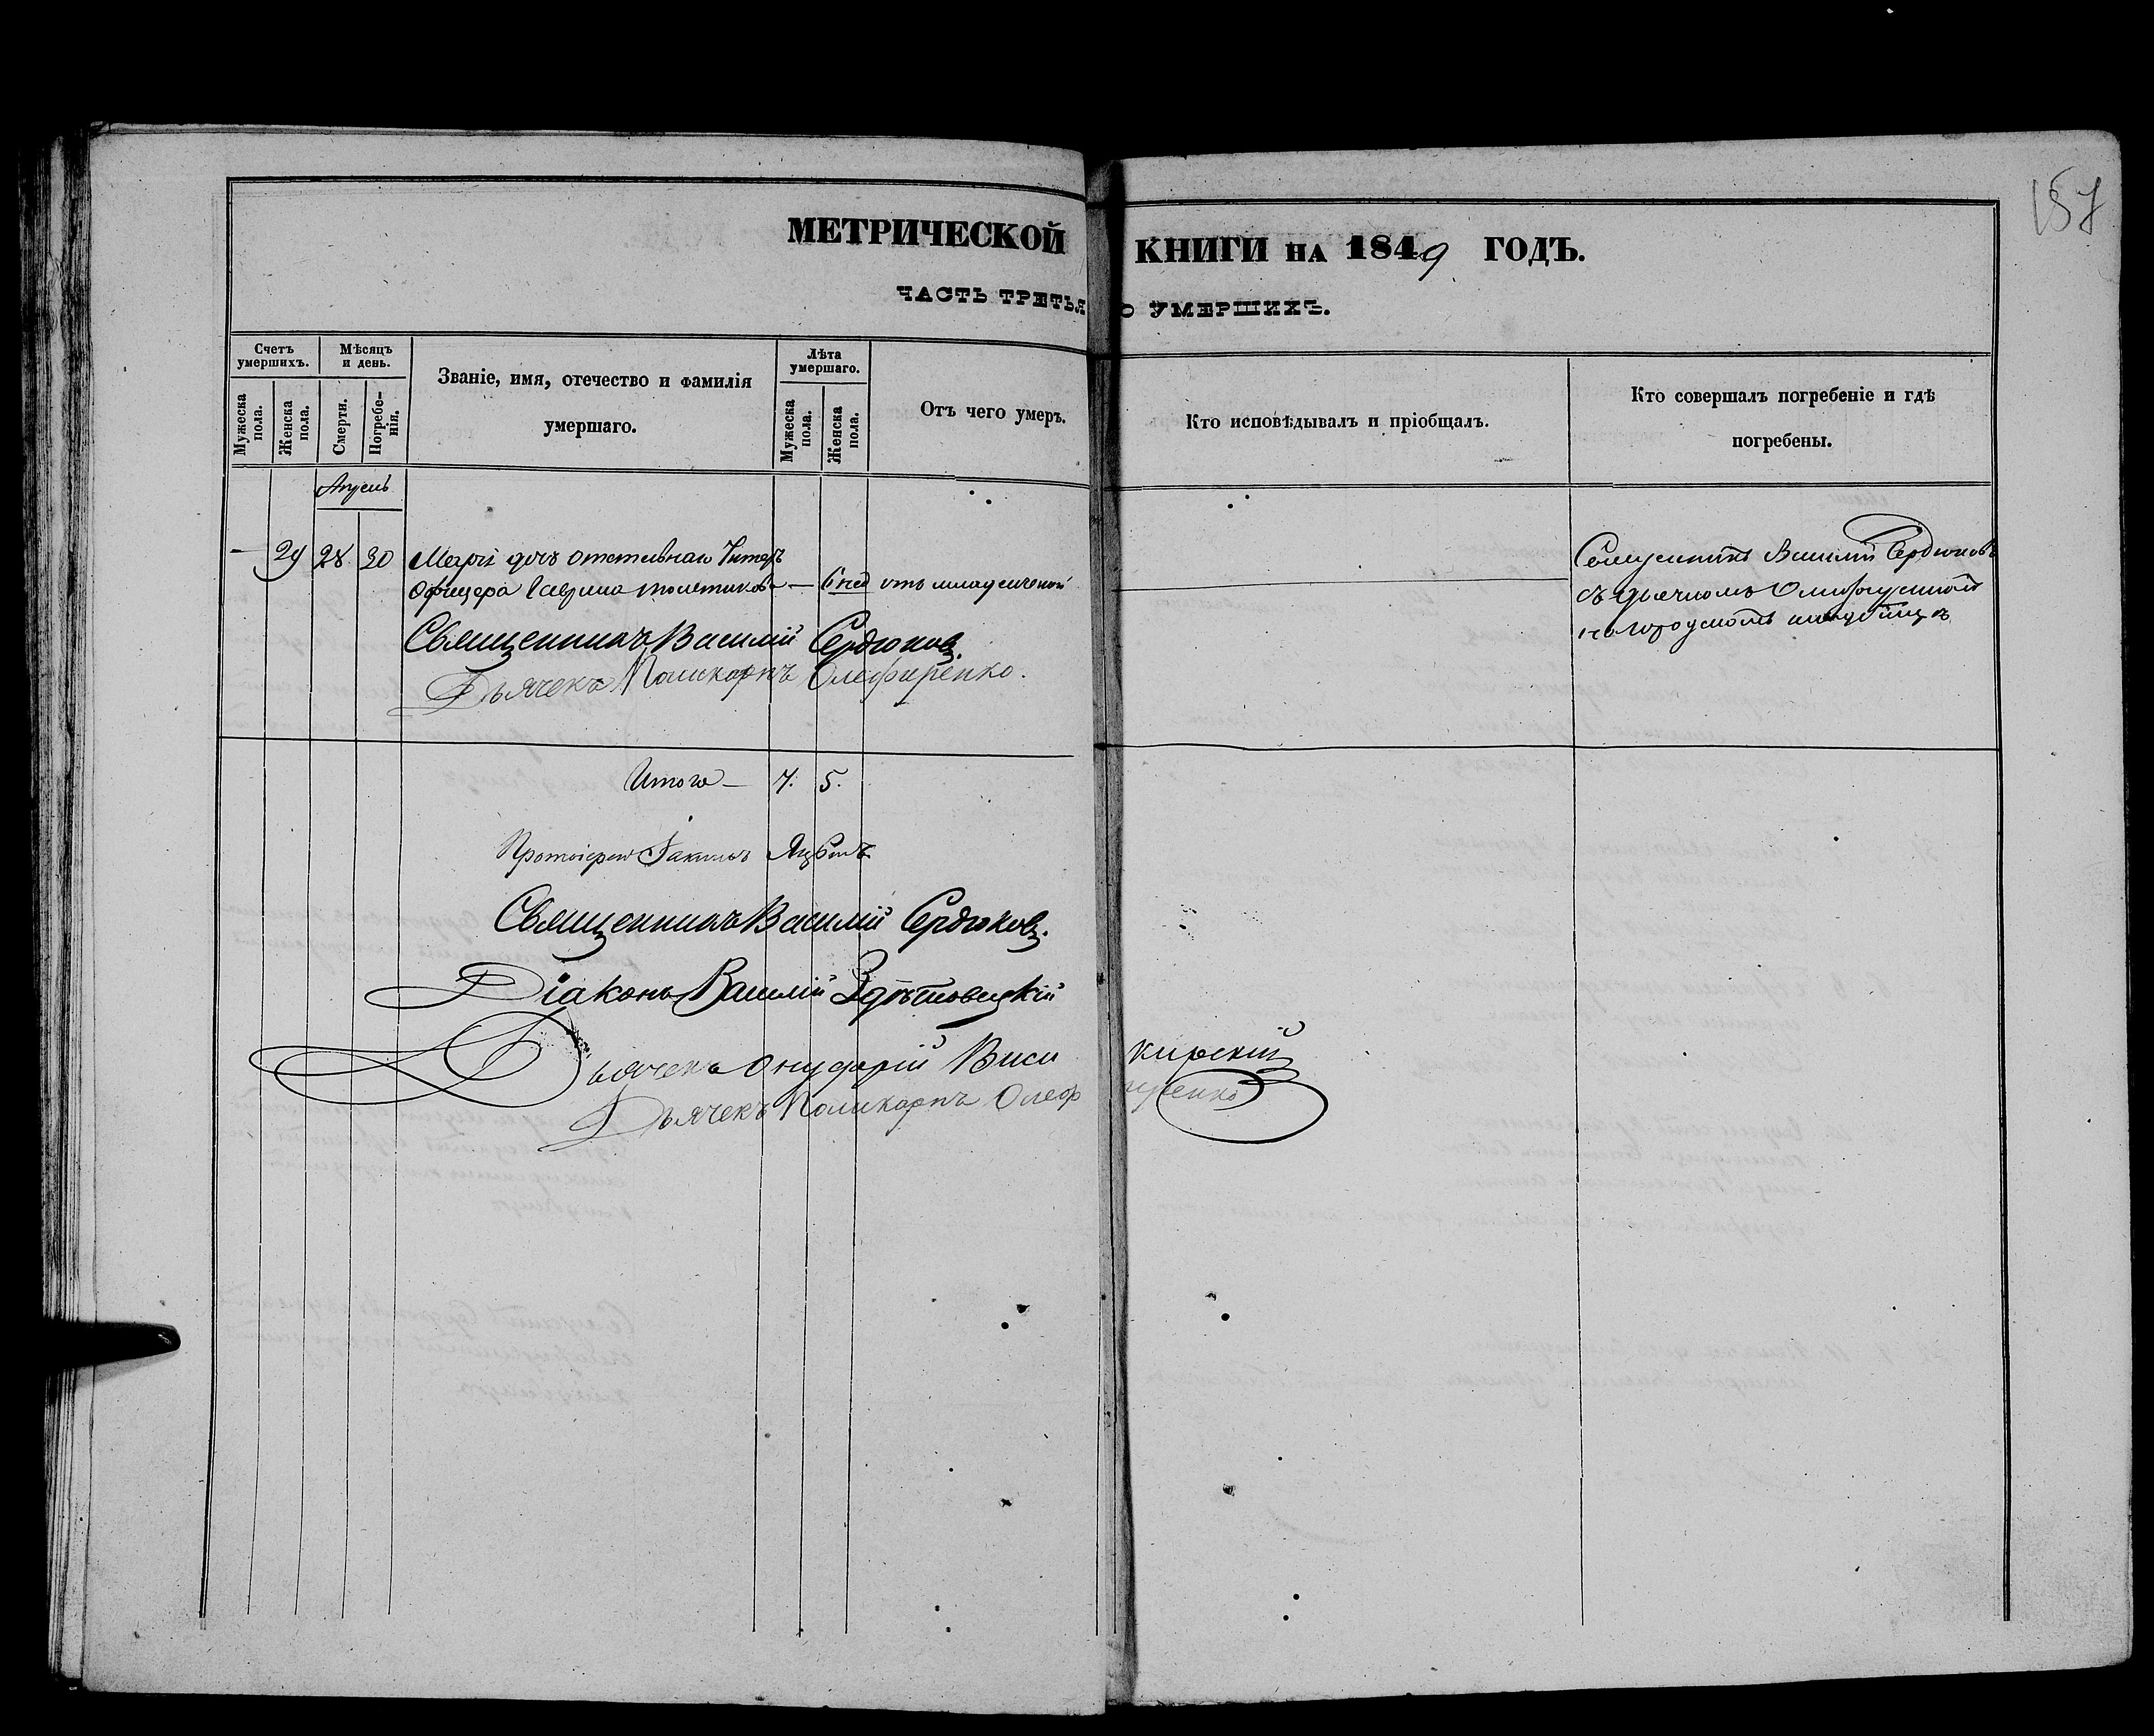 157
МЕТРИЧЕСКОЙ КНИГИ НА 1849 ГОДЪ.
ЧАСТЬ ТРЕТЬЯ О УМЕРШИХЪ.
Счетъ умершихъ.
Мѣсяцъ и день.
Званіе, имя, отечество и фамилія умершаго.
Лѣта умершаго.
Отъ чего умеръ.
Кто исповѣдывалъ и пріобщалъ.
Кто совершалъ погребеніе и гдѣ погребены.
Мужеска пола.
Женска пола.
Смерти.
Погребенія.
Мужеска пола.
Женска пола.
Апрель
— 29 28 30 Марія дочь отставнаго Унтеръ
Офицера Гаврила — 6 нед отъ младенческой
Священникъ Василій Сердюковъ
съ дьячкомъ
на городскомъ кладбищѣ
Священникъ Василій Сердюковъ.
Дьячекъ Поликарпъ Олефиренко.
Итого — 7. 5.
Протоіерей Іакимъ
Священникъ Василій Сердюковъ.
Діаконъ Василій
Дьячекъ Онуфрій
Дьячекъ Поликарпъ Олефиренко